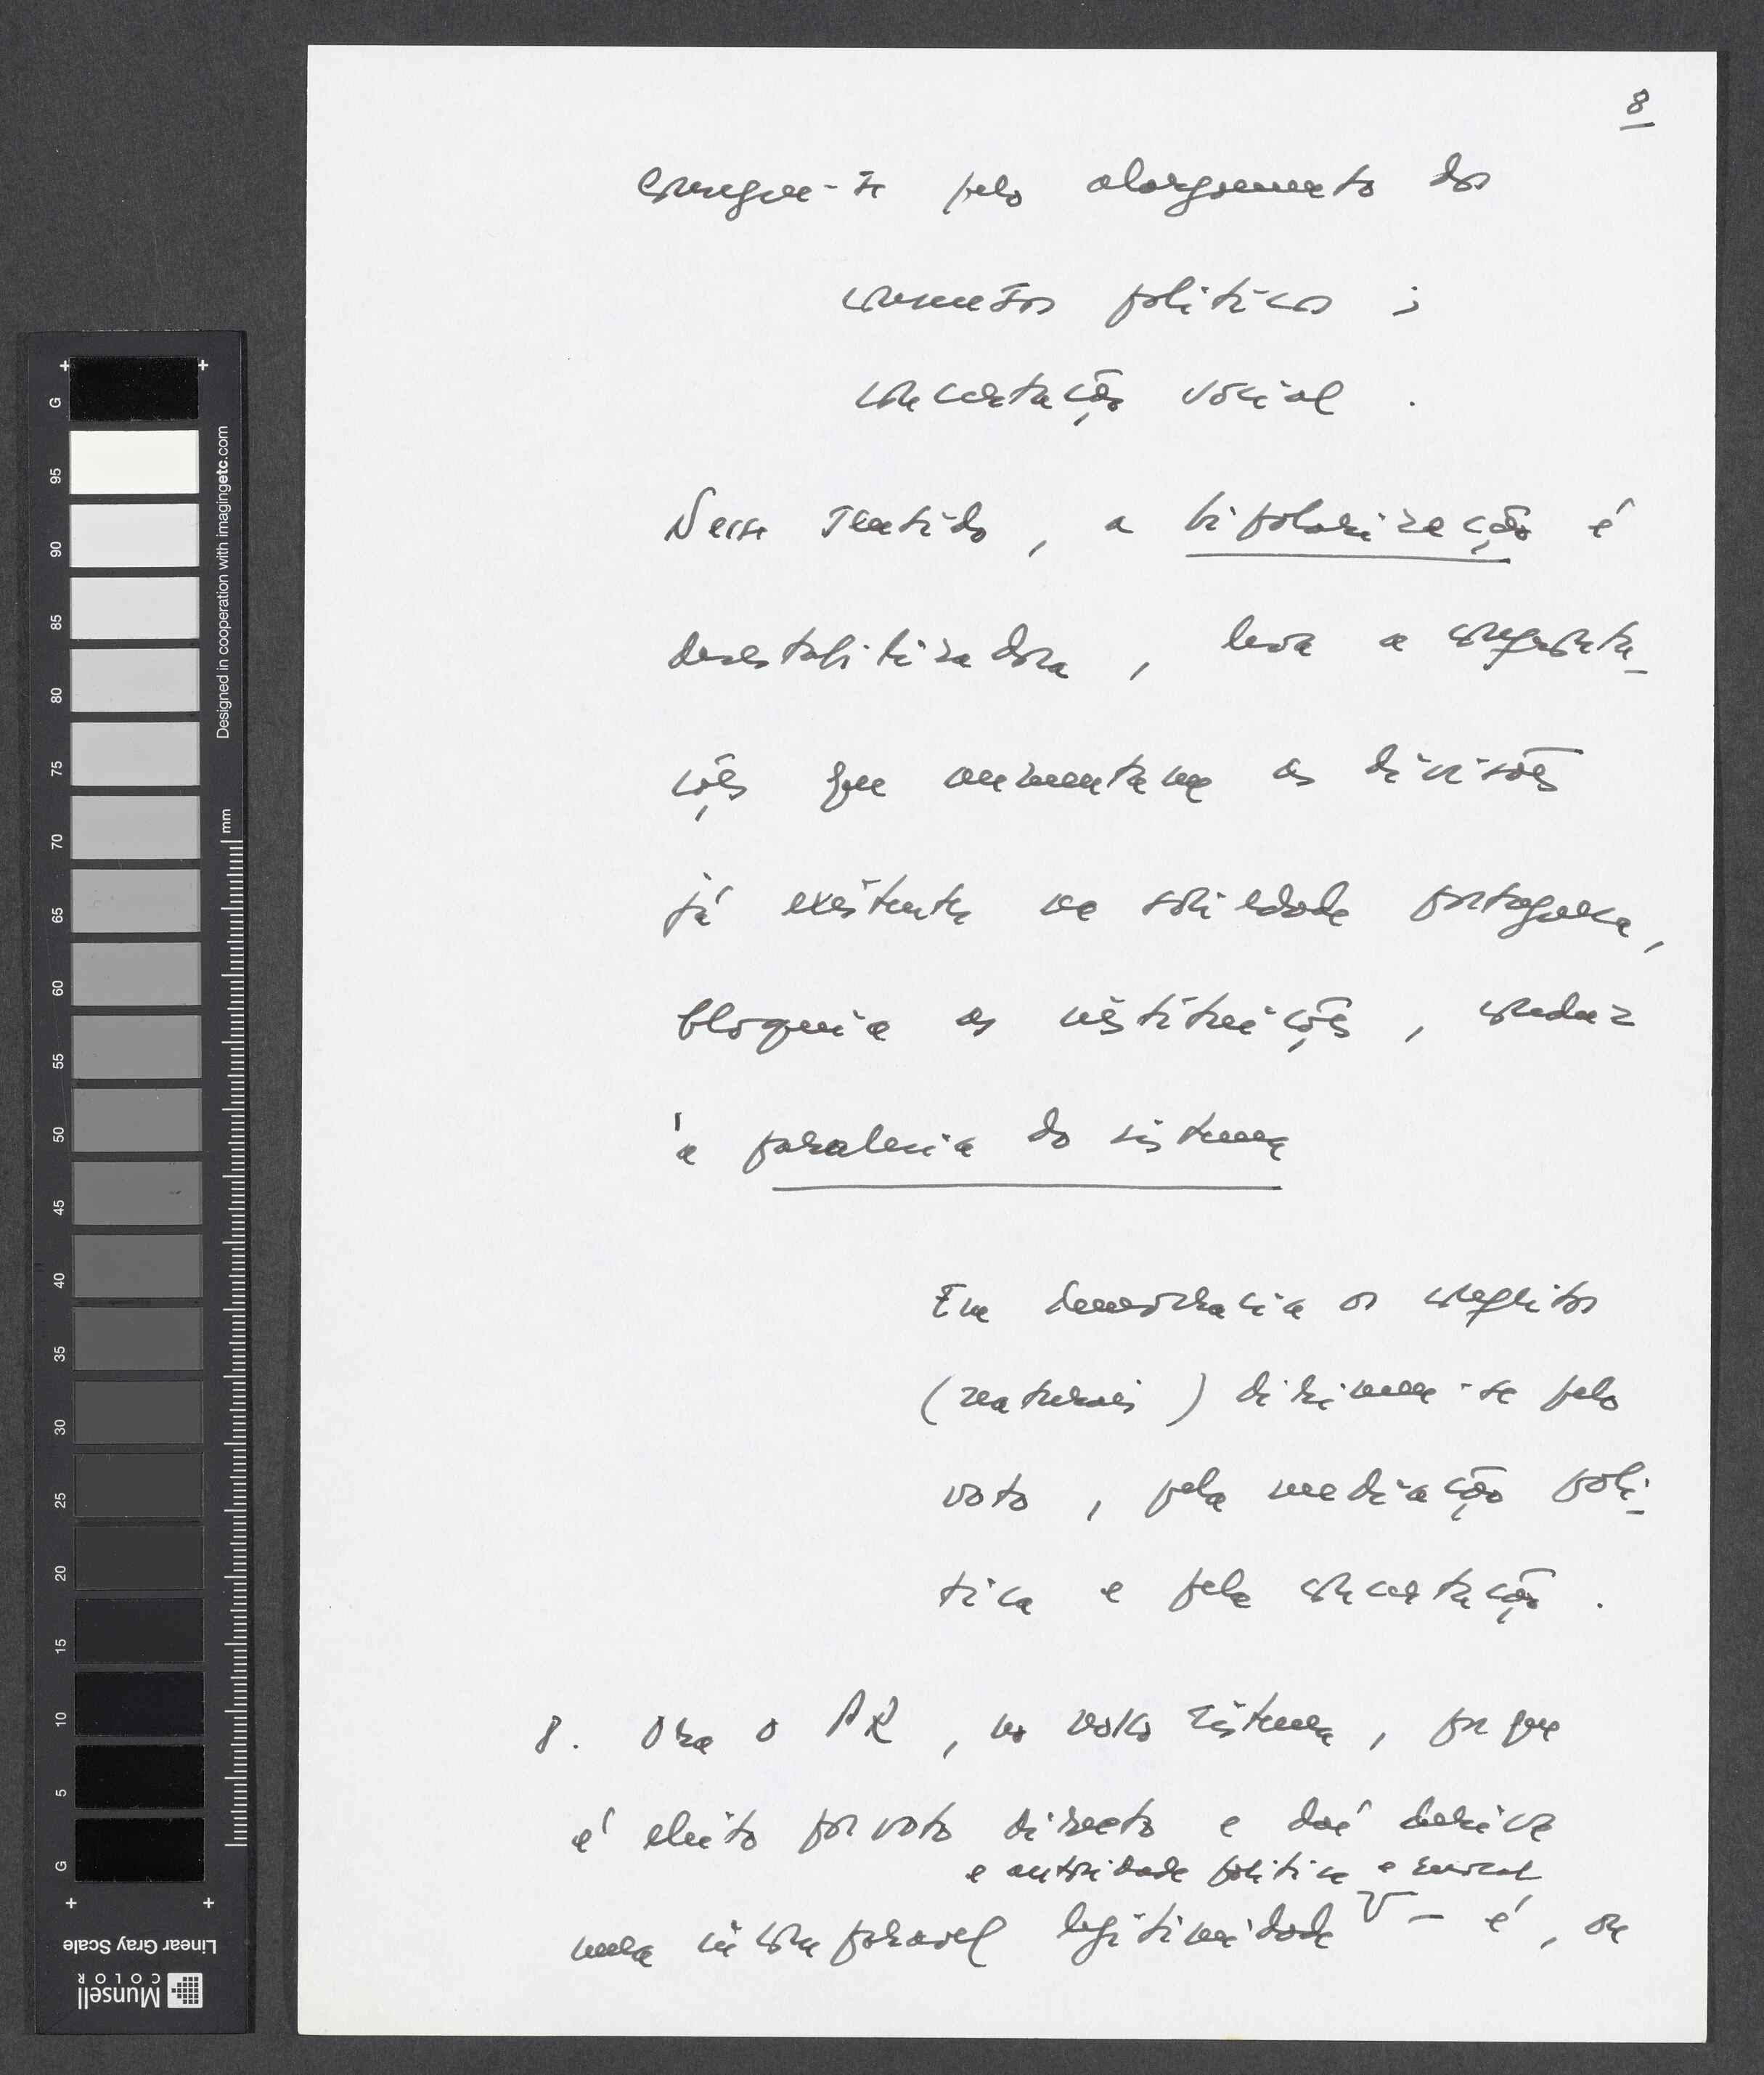 8
Consegue-se pelo alargamento dos
consensos politicos ;
concertação social .
Nesse sentido , a bipolarização é
desestabilizadora , leva a confronta-
ções que aumentam as divisões
já existentes na sociedade portuguesa,
bloqueia as instituições , conduz
à paralesia do sistema
Em democracia os conflitos
(naturais) dirimem-se pelo
voto , pela mediação polí-
tica e pela concertação .
8. Ora o PR , no nosso sistema , porque
é eleito por voto directo e daí deriva
e autoridade politica e moral
uma incomparavel legitimidade V - é , ou
G
95
90
85
80
75
70
65
60
55
50
45
40
35
30
25
20
15
10
5
G
Designed in cooperation with imagingetc.com
mm
Linear Gray Scale
Munsell
COLOR